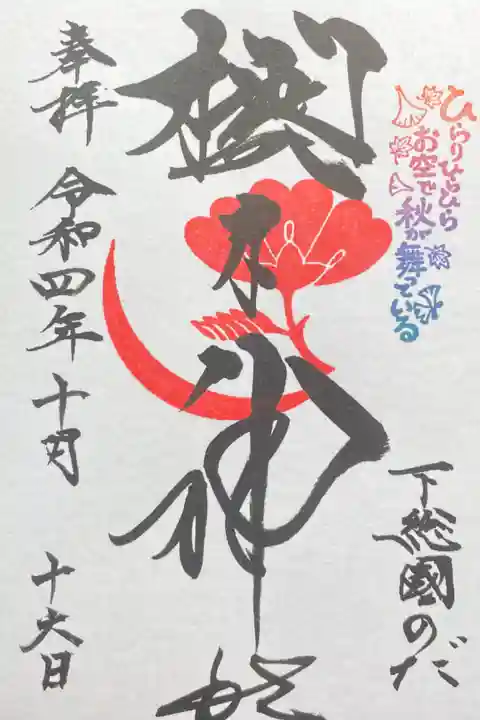 ひらりひらひら
お空で
秋が舞っている
下総國のだ
櫻木神社
奉拝
令和四年十月十六日